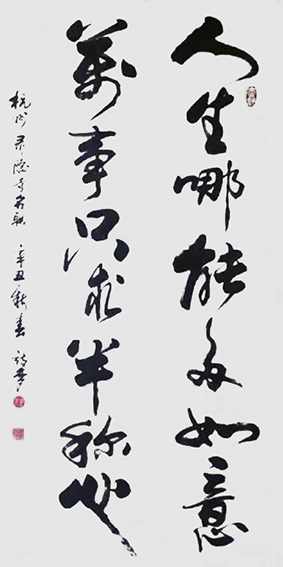 人生哪能多如意
萬事只求半称心
杭州灵隐寺名联 辛丑新春